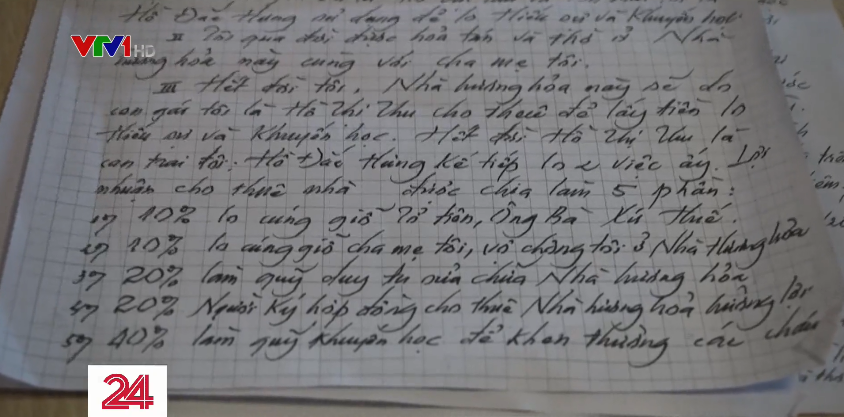 VTV1 HD
Hồ Đắc Hưng sử dụng để lo Hiếu sự và Khuyến học
II Tôi qua đời được hỏa tán và thờ ở Nhà
hương hỏa này cùng với cha mẹ tôi.
III Hết đời tôi, Nhà hương hỏa này sẽ do
con gái tôi là Hồ Thị Thu cho thuê để lấy tiền lo
Hiếu sự và Khuyến học. Hết đời Hồ Thị Thu là
con trai tôi: Hồ Đắc Hưng kế tiếp lo 2 việc ấy. Lợi
nhuận cho thuê nhà được chia làm 5 phần:
1) 10% lo cúng giỗ Tổ tiên, Ông Bà Xứ Huế.
2) 10% lo cúng giỗ cha mẹ tôi, vợ chồng tôi ở Nhà Hương hỏa
3) 20% làm quỹ duy tu sửa chữa Nhà hương hỏa
4) 20% Người Ký hợp đồng cho thuê Nhà hương hỏa hưởng lời
5) 40% làm quỹ Khuyến học để Khen thưởng các cháu
24